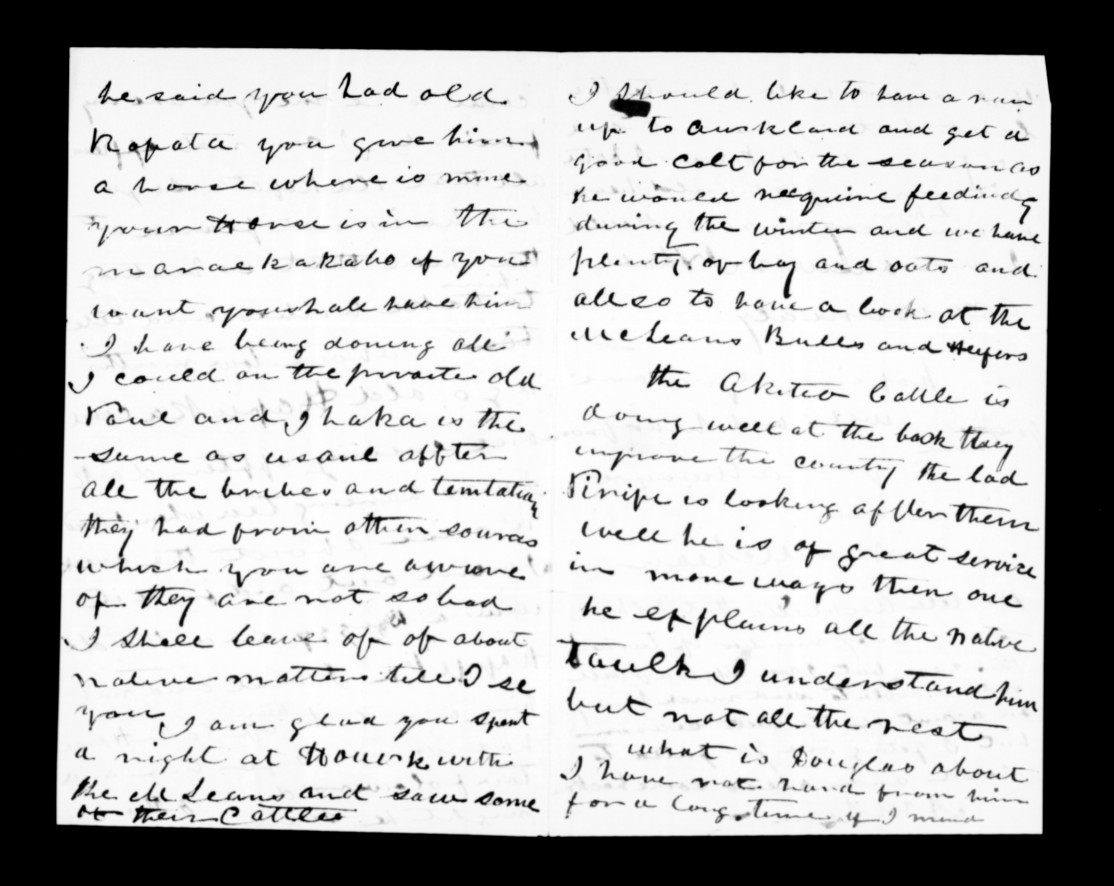 he said you had old
Ropata you give him
a horse where is mine
your Horse is in the
manaekakaho if you
want you shale have him
I have being doning all
I could on the private old
Paul and Ihaka is the
same as usaul affter
all the bribes and temtations
they had from other sources
which you are awore
of they are not so bad
I shall leave of of about
native matters till I se
you, I am glad you spent
a night at Howick with
the McLeans and saw some
of their Cattles
I should like to have a run
up to Auskland and get a
good colt for the season as
he would require feeding
during the winter and we have
plenty of hay and oats and
allso to have a look at the
McLeans Bulls and Heifers
the Akiteo Cattle is
doing well at the back they
improve the county the lad
Piripi is looking affter them
well he is of great service
in more ways then one
he explains all the native
taulk I understand him
but not all the rest
what is Douglas about
I have not hard from him
for a long time if I mind